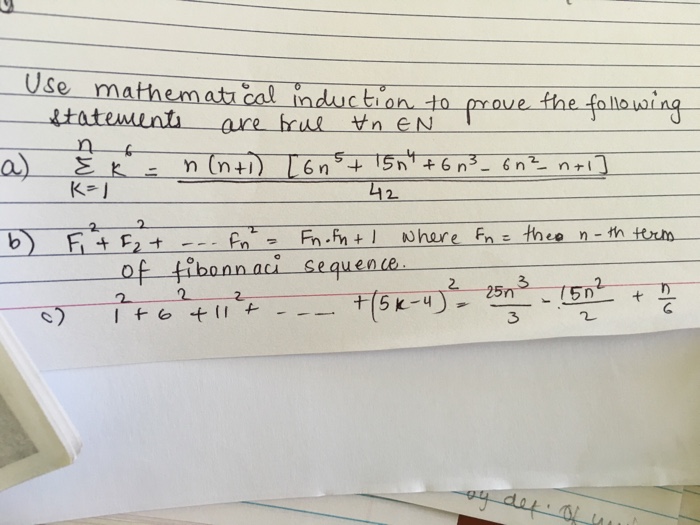 Use mathematical induction to prove the following
statements are true ∀n ∈ N
a) n Σ k=1 k⁶ = n(n+1) [6n⁵ + 15n⁴ + 6n³ - 6n² - n + 1] / 42
b) F₁² + F₂² + --- fn² = Fn.fn + 1 where Fn = theo n-th term
of fibonnaci sequence.
c) 1² + 6² + 11² + - - - - + (5k-4)² = 25n³/3 - 15n²/2 + n/6
by def. of